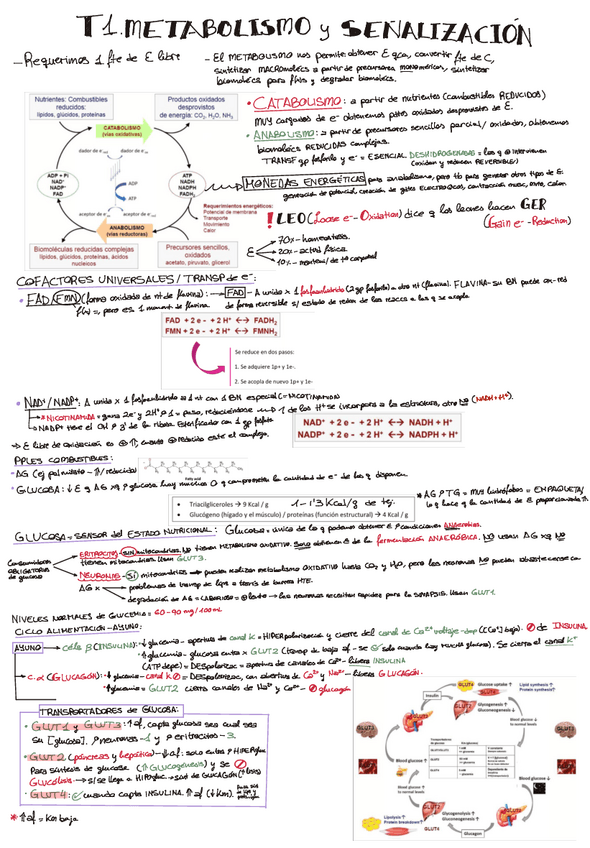 T1. METABOLISMO y SEÑALIZACIÓN
- Requerimos 1 fte de E libre
- El METABOLISMO nos permite obtener E qca, convertir fte de C,
sintetizar MACROmolécs a partir de precursores MONOméricos, sintetizar
biomolécs para fxns y degradar biomolécs.
Nutrientes: Combustibles reducidos: lípidos, glúcidos, proteínas
Productos oxidados desprovistos de energía: CO2, H2O, NH3
CATABOLISMO (vías oxidativas)
dador de e-red
dador de e-ox
ADP + Pi
NAD+
NADP+
FAD
ADP
ATP
ATP
NADH
NADPH
FADH2
aceptor de e-red
aceptor de e-ox
Requerimientos energéticos:
Potencial de membrana
Transporte
Movimiento
Calor
ANABOLISMO (vías reductoras)
Biomoléculas reducidas complejas: lípidos, glúcidos, ácidos nucleicos
Precursores sencillos, oxidados: acetato, piruvato, glicerol
• CATABOLISMO: a partir de nutrientes (combustibles REDUCIDOS)
MUY cargados de e- obtenemos pdtos oxidados desprovistos de E.
• ANABOLISMO: a partir de precursores sencillos parcial/ oxidados, obtenemos
biomolécs REDUCIDAS complejas.
TRANSF gp fosforilo y e- = ESENCIAL DESHIDROGENASAS = los q intervienen
(oxidan y reducen REVERSIBLE/)
MONEDAS ENERGÉTICAS para anabolismo, pero tb para generar otros tipos de E:
generación de potencial, creación de gtes ELECTROQCOS, contracción musc, mvto, calor
! LEO (Loose e- - Oxidation) dice q los leones hacen GER
(Gain e- - Reduction)
E
70% - homeostasis.
20% - actvd física
10% - mantener tª corporal
COFACTORES UNIVERSALES / TRANSP de e-:
• FAD / FMN (forma oxidada de nt de flavina): FAD - A unido x 1 fosfoanhidrido (2 gp fosfato) a otro nt (flavina). FLAVINA - su BN puede ox-red
de forma reversible s/ estado de redox de las reaccs a las q se acopla
FAD + 2 e - + 2 H+ ↔ FADH2
FMN + 2 e - + 2 H+ ↔ FMNH2
Se reduce en dos pasos:
1. Se adquiere 1p+ y 1e-.
2. Se acopla de nuevo 1p+ y 1e-
• NAD+ / NADP+: A unido x 1 fosfoanhidrido a 1 nt con 1 BN especial (= NICOTINAMIDA)
* NICOTINAMIDA = gana 2e- y 2H+ 1 paso, reduciéndose 1 de los H+ se incorpora a la estructura, otro NO (NADH + H+).
NADP+ tiene el OH 2' de la ribosa esterificado con 1 gp fosfato
NAD+ + 2 e - + 2 H+ ↔ NADH + H+
NADP+ + 2 e - + 2 H+ ↔ NADPH + H+
⇒ E libre de oxidación es ⊕ ↑; cuanto ⊕ reducido esté el complejo.
PPLES COMBUSTIBLES:
- AG (ej palmitato - ↑/ reducido)
Fatty acid
- GLUCOSA: ↓ E q AG xq glucosa hay muchos O q comprometen la cantidad de e- de los q disponen.
• Triacilgliceroles → 9 Kcal / g
1 - 1'3 Kcal/g de tej.
• Glucógeno (hígado y el músculo) / proteínas (función estructural) → 4 Kcal / g
* AG TG = muy hidrófobos = EMPAQUETA/
lo q hace q la cantidad de E proporcionada ↑.
GLUCOSA = SENSOR del ESTADO NUTRICIONAL: Glucosa = único de lo q podemos obtener E condiciones ANAerobias.
Consumidores OBLIGATORIOS de glucosa
ERITROCITOS - sin mitocondrias. NO tienen METABOLISMO OXIDATIVO. Solo obtienen E de la fermentación ANAERÓBICA. NO usan AG xq NO
tienen mitocondrias. Usan GLUT3.
NEURONAS - SÍ mitocondrias → pueden realizar metabolismo OXIDATIVO hasta CO2 y H2O, pero las neuronas NO pueden abastecerse con
AG x
problemas de transp de lips a través de barrera HTE.
degradación de AG = LABORIOSO = lento → las neuronas necesitan rapidez para la SINAPSIS. Usan GLUT1.
NIVELES NORMALES DE GLUCEMIA = 60 - 90 mg / 100 mL
CICLO ALIMENTACIÓN - AYUNO:
AYUNO
célu β (INSULINA): ↓ glucemia - apertura de canal K = HIPERpolarización y cierre del canal de Ca2+ voltaje-dep ([Ca2+] bajo). de INSULINA
↑ glucemia - glucosa entra x GLUT2 (transp de baja af - se solo cuando hay mucha glucosa). Se cierra el canal K+
(ATP depe) = DESpolarizac = apertura de canales de Ca2+ - libera INSULINA
c. α (GLUCAGÓN): ↓ glucemia - canal K = DESpolarizac, con abertura de Ca2+ y Na2+ - libera GLUCAGÓN.
↑ glucemia = GLUT2 cierra canales de Na2+ y Ca2+ - glucagón
TRANSPORTADORES de GLUCOSA:
• GLUT1 y GLUT3: ↑ af, capta glucosa sea cual sea
su [glucosa], neuronas - 1 y eritrocitos - 3.
• GLUT2 (páncreas y hepático) - ↓ af: solo entra HIPERgluc
para síntesis de glucosa. (↑ Glucogénesis) y se
GLUCÓLISIS → s/ se llega a HIPOgluc → sod de GLUCAGÓN
• GLUT4: cuando capta INSULINA. ↑ af (↓ Km).
* ↑ af = Km baja
GLUT4
Glucose uptake ↑
Lipid synthesis ↑
Protein synthesis ↑
Insulin
Glycogenesis ↑
Gluconeogenesis ↓
GLUT2
GLUT3
Blood glucose ↑
Blood glucose ↓
to normal levels
Blood glucose ↑
to normal levels
Blood glucose ↓
Lipolysis ↑
Protein breakdown ↑
GLUT4
Glycogenolysis ↑
Gluconeogenesis ↑
GLUT2